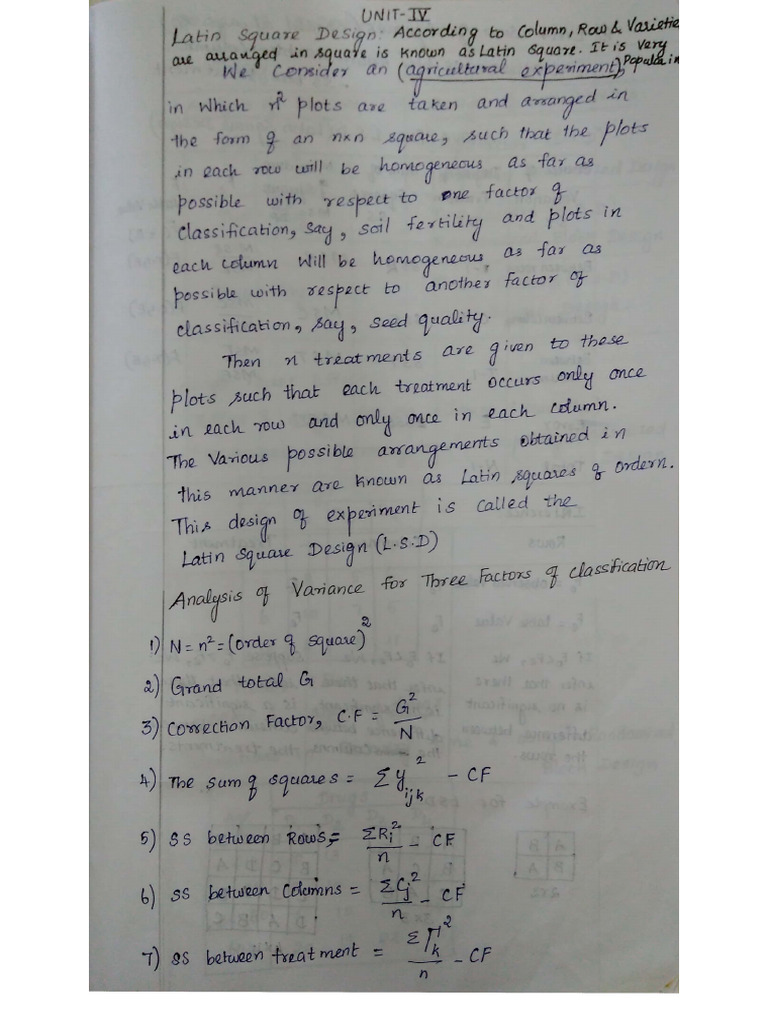 UNIT-IV
Latin Square Design: According to Column, Row & Varietie
are arranged in square is known as Latin Square. It is very
We Consider an (agricultural experiment), Popular in
in Which n² plots are taken and arranged in
the form of an n×n square, such that the plots
in each row will be homogeneous as far as
possible with respect to one factor of
classification, say, soil fertility and plots in
each column will be homogeneous as far as
possible with respect to another factor of
classification, say, seed quality.
Then n treatments are given to these
plots such that each treatment occurs only once
in each row and only once in each column.
The Various possible arrangements obtained in
this manner are known as Latin squares of order n.
This design of experiment is called the
Latin Square Design (L.S.D)
Analysis of Variance for Three Factors of classification
1) N = n² = (order of square)²
2) Grand total G
3) Correction Factor, C.F = G²/N
4) The sum of squares = Σy²ijk - CF
5) SS between Rows = ΣRi²/n - CF
6) SS between Columns = ΣCj²/n - CF
7) SS between treatment = ΣTk²/n - CF